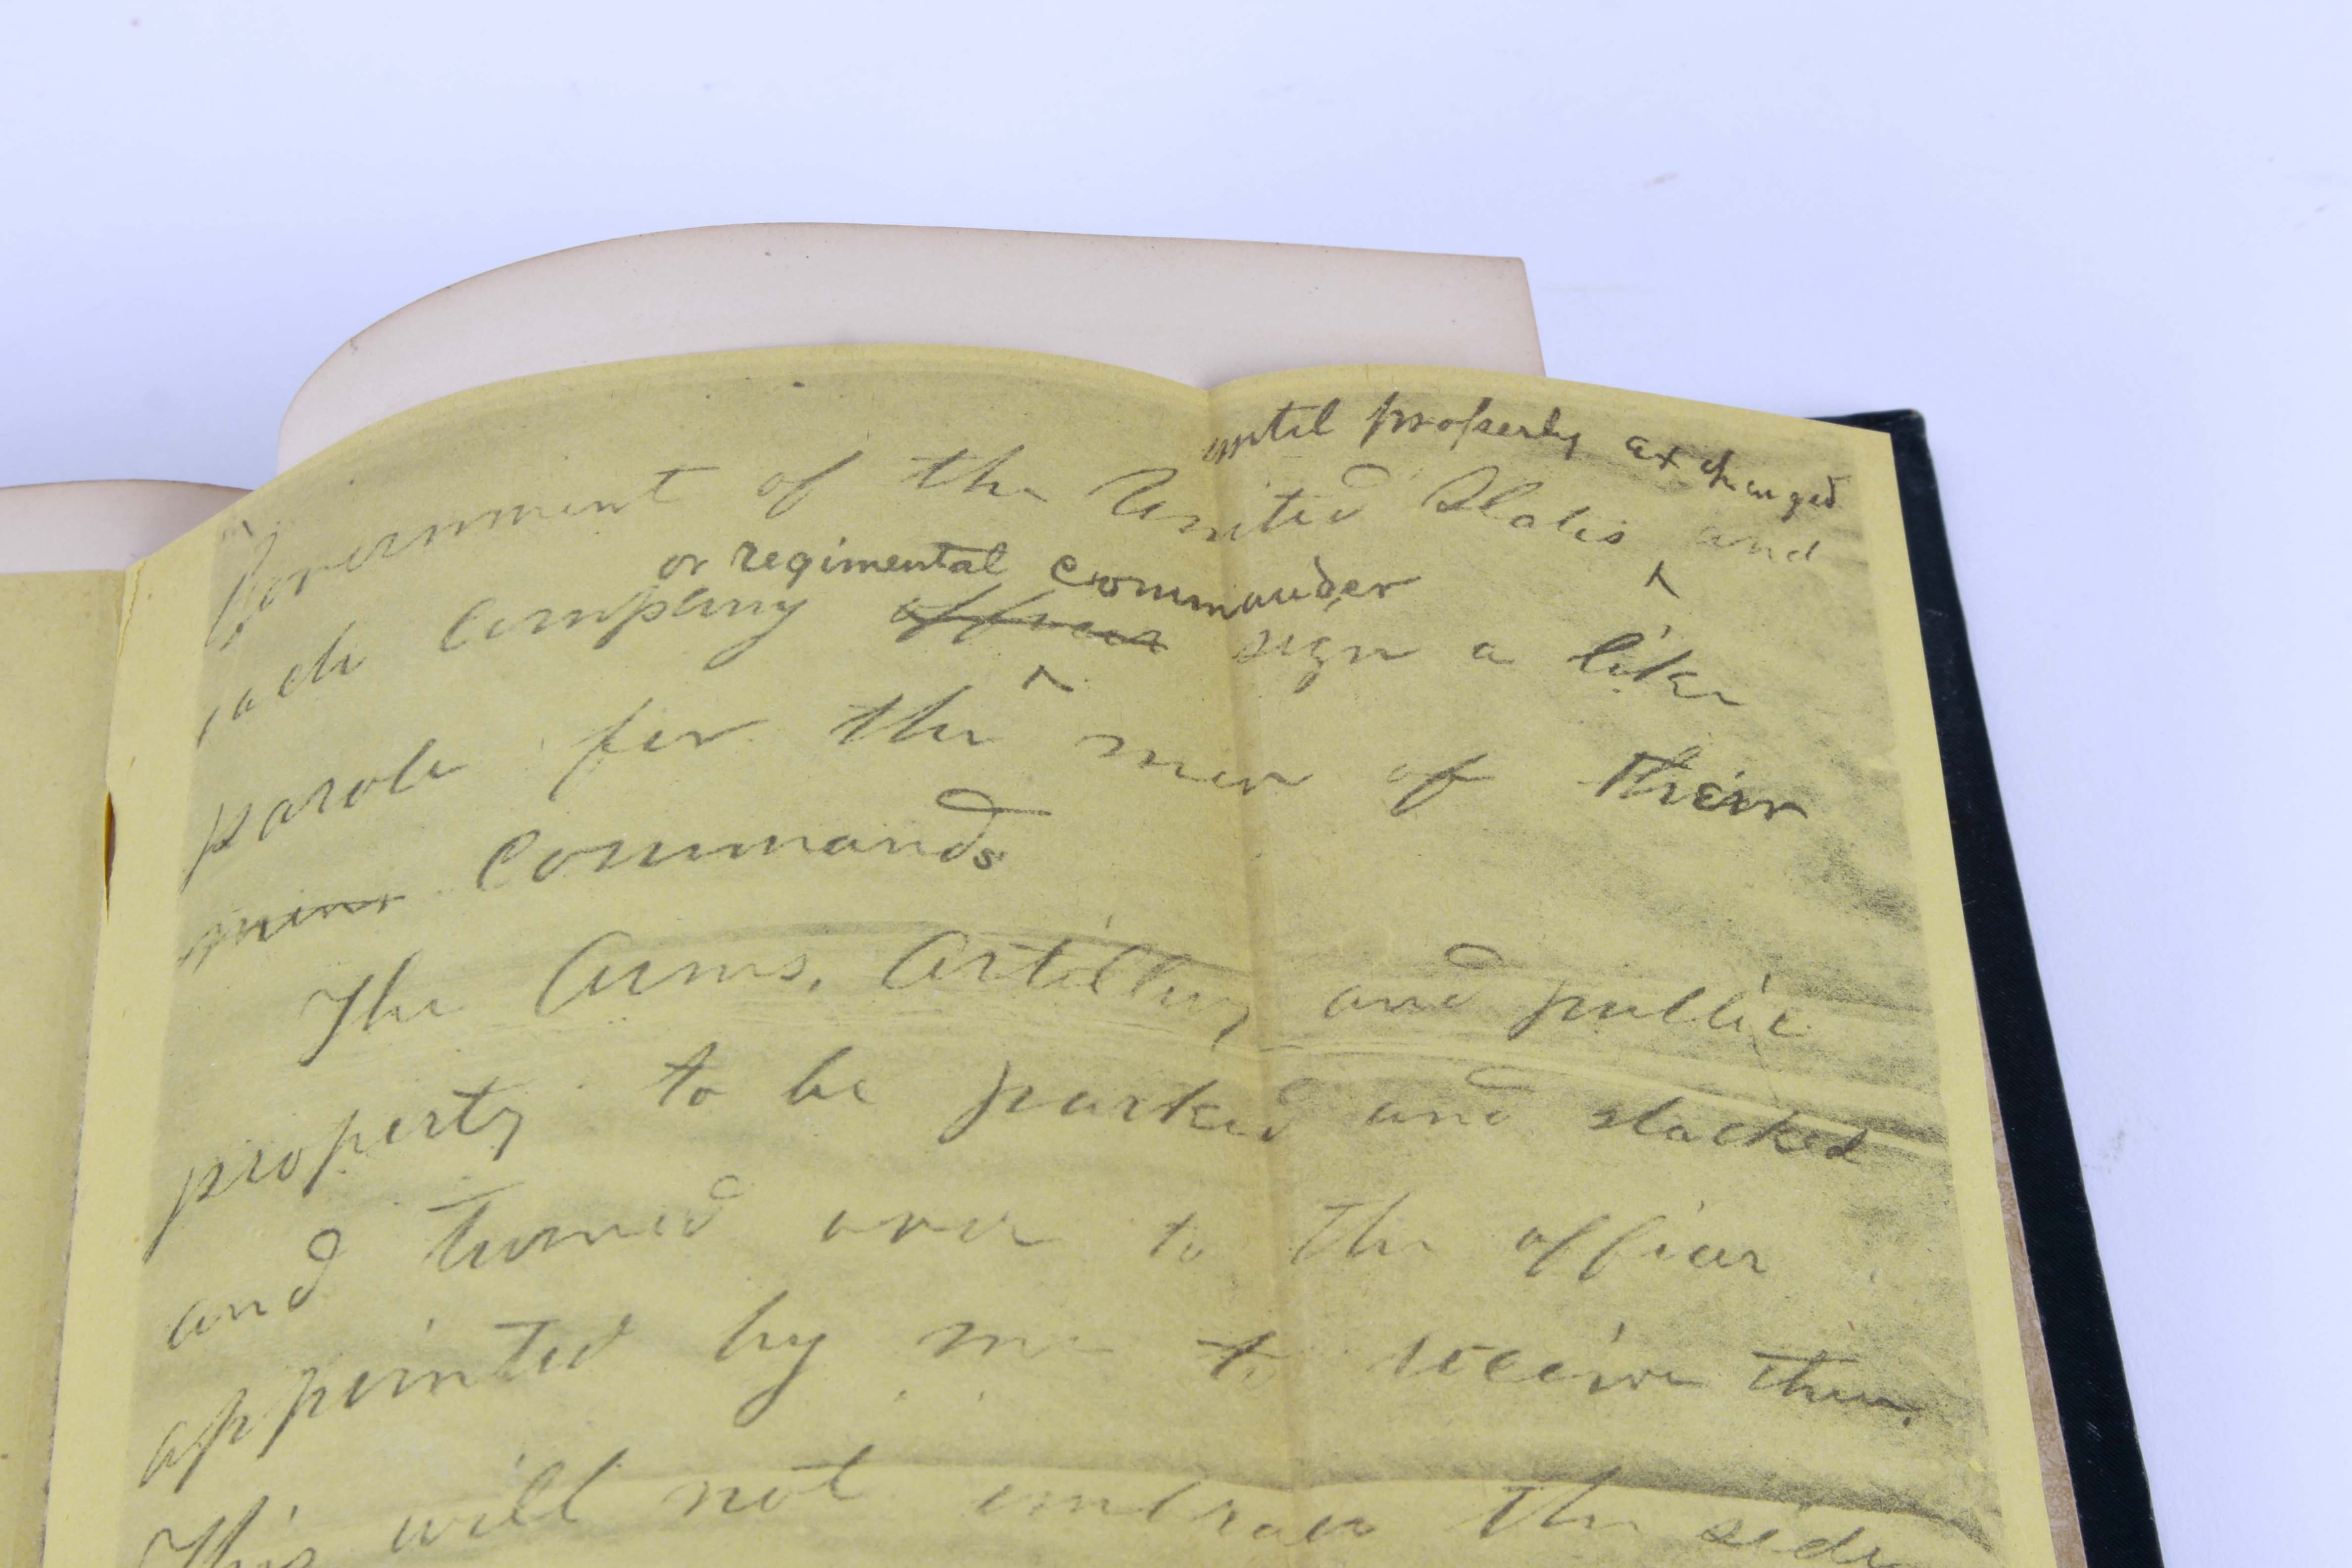 until properly exchanged
Government of the United States ^ and
or regimental commander
each company officer ^ sign a like
parole for the men of their
commands
The Arms, Artillery and public
property to be parked and stacked
and turned over to the officer
appointed by me to receive them.
This will not embrace the side